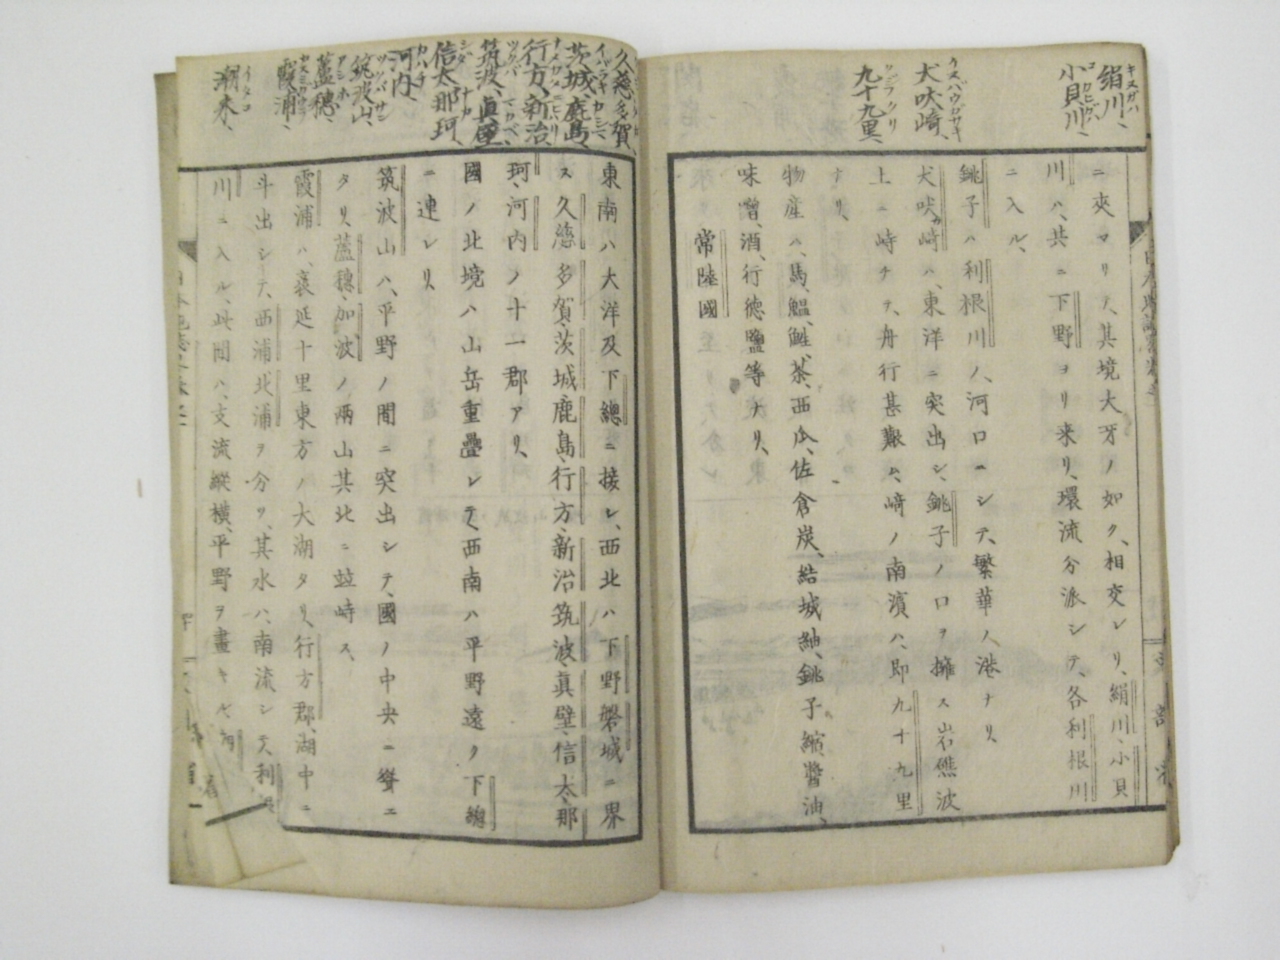 絹川、
キヌガハ
小貝川、
コカヒガハ
犬吠崎、
九十九里、
ニ夾マリテ、其境大牙ノ如ク、相交レリ、絹川、小貝
川ハ、共ニ下野ヨリ来リ、環流分派シテ、各利根川
ニ入ル、
銚子ハ利根川ノ、河口ニシテ、繁華ノ港ナリ
犬吠崎ハ、東洋ニ突出シ、銚子ノ口ヲ擁ス岩礁波
上ニ峙チテ、舟行甚艱ム、崎ノ南濱ハ、即九十九里
ナリ、
物産ハ、馬、鰮、鮏、茶、西瓜、佐倉炭、結城紬、銚子縮、醬油、
味噌、酒、行徳鹽等ナリ、
常陸國
久慈、多賀
茨城、鹿島、
イバラキ カシマ
行方、新治、
筑波、眞壁、
ツクバ マカベ
信太、那珂、
シダ ナカ
河内、
カハチ
筑波山、
ツクバサン
蘆穗、
アシホ
霞浦、
カスミガウラ
潮来、
イタコ
東南ハ大洋及下總ニ接シ、西北ハ下野磐城ニ界
ス久慈、多賀、茨城、鹿島、行方、新治、筑波、眞壁、信太、那
珂、河内ノ十一郡アリ、
國ノ北境ハ山岳重疊シテ、西南ハ平野遠ク下總
ニ連レリ、
筑波山ハ、平野ノ間ニ突出シテ、國ノ中央ニ聳ニ
タリ、蘆穗、加波ノ両山其北ニ竝峙ス、
霞浦ハ、袤延十里東方ノ大湖タリ、行方郡、湖中ニ
斗出シテ、西浦、北浦ヲ分ツ、其水ハ、南流シテ、利根
川ニ入ル、此間ハ、支流縱横、平野ヲ畫キ